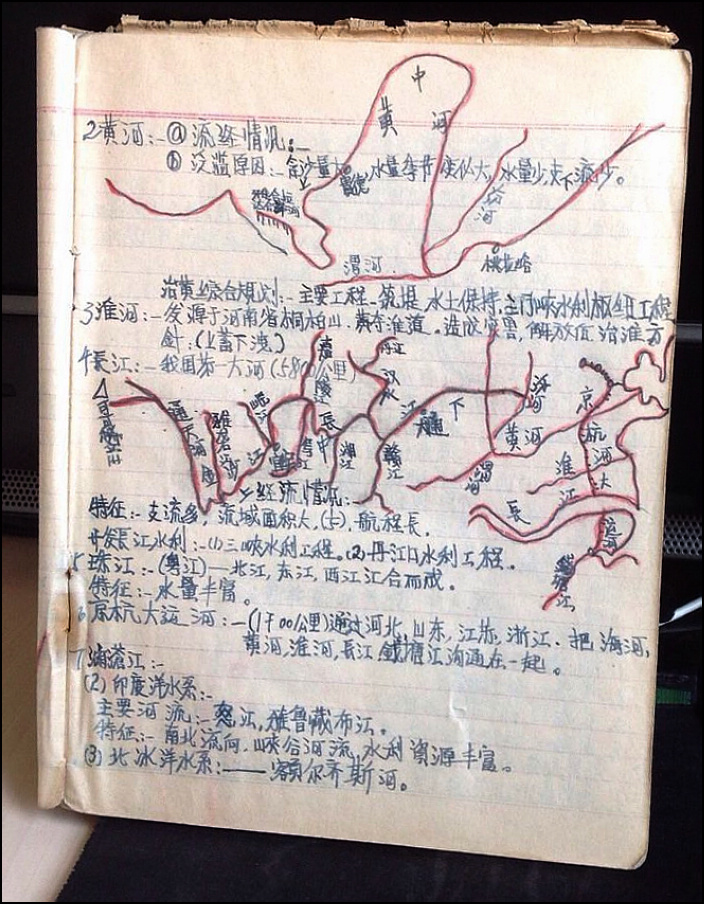 中
黄 河
2黄河:—ⓐ流经情况:—
ⓑ泛滥原因:—含沙量大,水量季节变化大,水量少支下流少。
渭河
治黄综合规划:—主要工程—筑堤,水土保持,三门峡水利枢纽工程
3淮河:—发源于河南省桐柏山.黄夺淮道.造成灾害,解放后治淮方
针:(上蓄下洩)
4长江:—我国第一大河(5800公里)
汉水
通天河
岷江
長 江
中
下
湘江
赣江
黄河
京杭大
河
淮
江
長
经流情况:—
特征:—支流多,流域面积大,(占),航程長.
开发长江水利:—(1)三峡水利工程.(2)丹江口水利工程.
5珠江:—(粤江)—北江,东江,西江汇合而成.
特征:—水量丰富。
6京杭大运河:—(1700公里)通过河北,山东,江苏,浙江.把海河,
黄河,淮河,長江,钱塘江沟通在一起。
7澜滄江:—
(2)印度洋水系:—
主要河流:—怒江,雅鲁藏布江.
特征:—南北流向.峡谷河流,水利资源丰富。
(3)北冰洋水系:——额尔齐斯河。